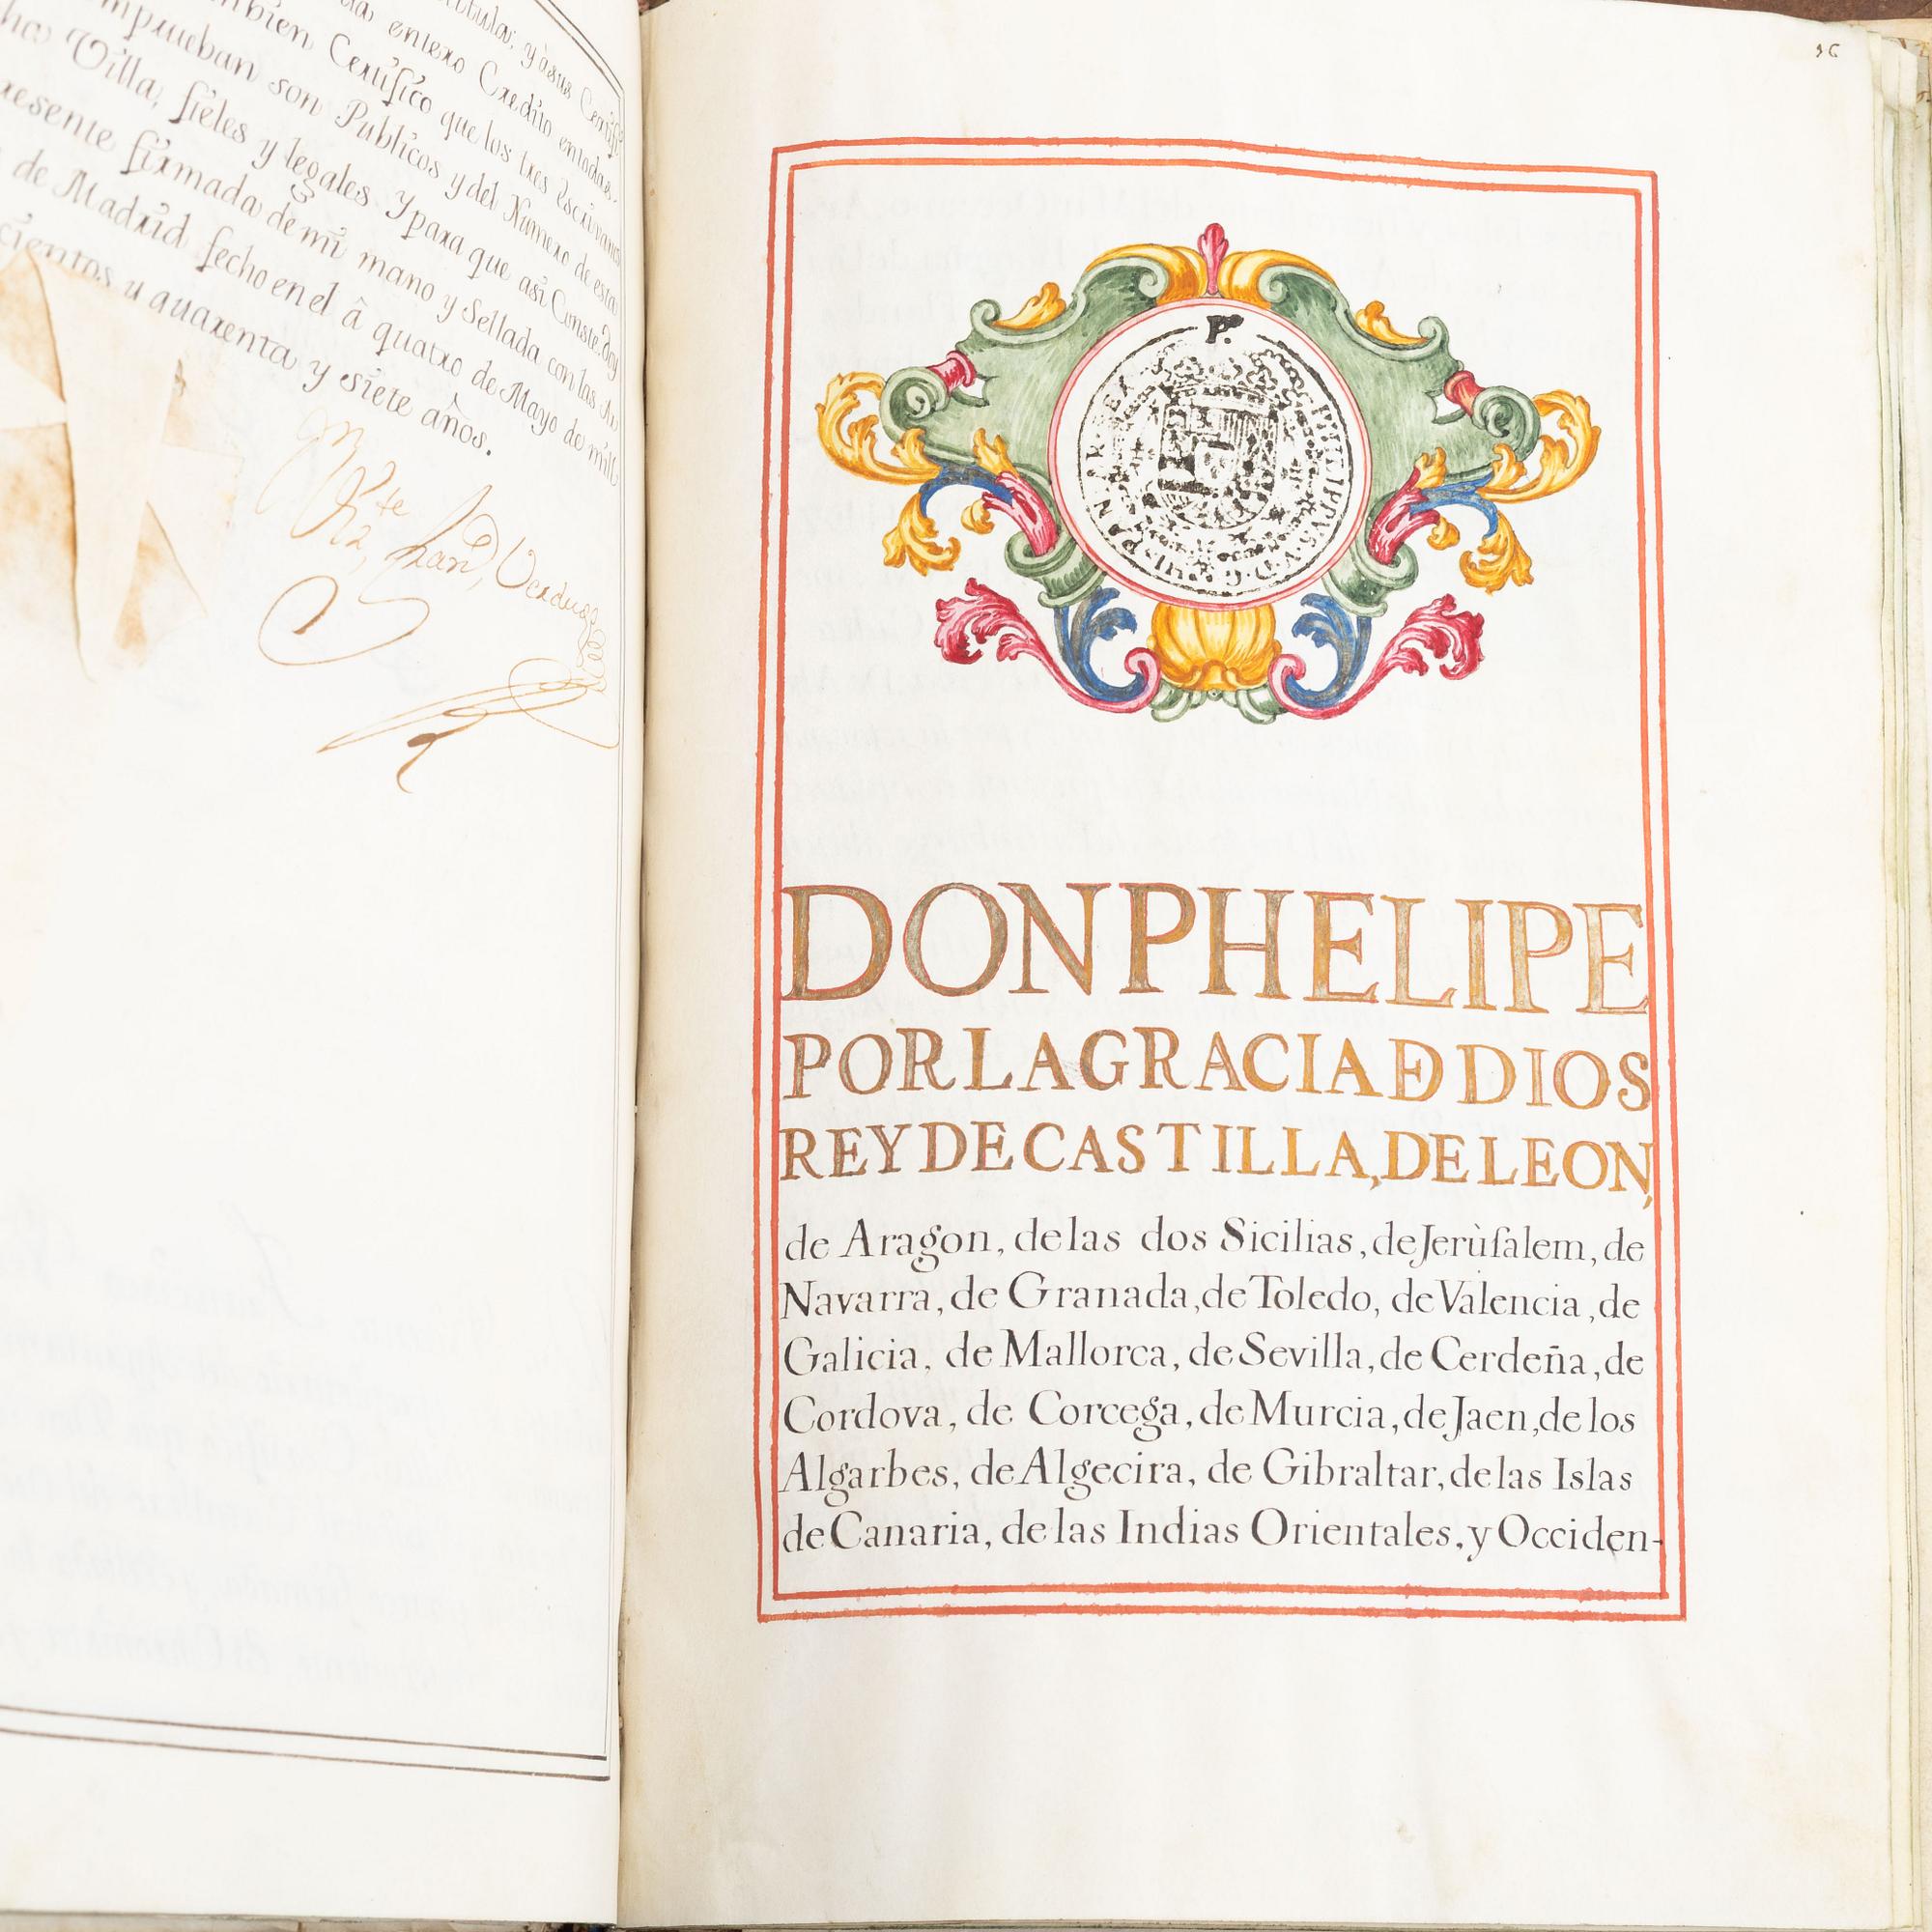 titula, y à sus Certifi
entero Credito en todas
tambien Certifico que los tres Escrivanos
comprueban son Publicos y del Numero de esta
Villa, fieles y legales y para que asi Conste doy
presente firmada de mi mano y Sellada con las Ar
de Madrid fecho en el â quatro de Mayo de mill
cientos y quarenta y siete años.
Verdugo
16
P.
PHILIPPVS·V·D·G·HISPANIAR·REX
DON PHELIPE
POR LA GRACIA D DIOS
REY DE CASTILLA, DE LEON,
de Aragon, de las dos Sicilias, de Jerùsalem, de
Navarra, de Granada, de Toledo, de Valencia, de
Galicia, de Mallorca, de Sevilla, de Cerdeña, de
Cordova, de Corcega, de Murcia, de Jaen, de los
Algarbes, de Algecira, de Gibraltar, de las Islas
de Canaria, de las Indias Orientales, y Occiden-